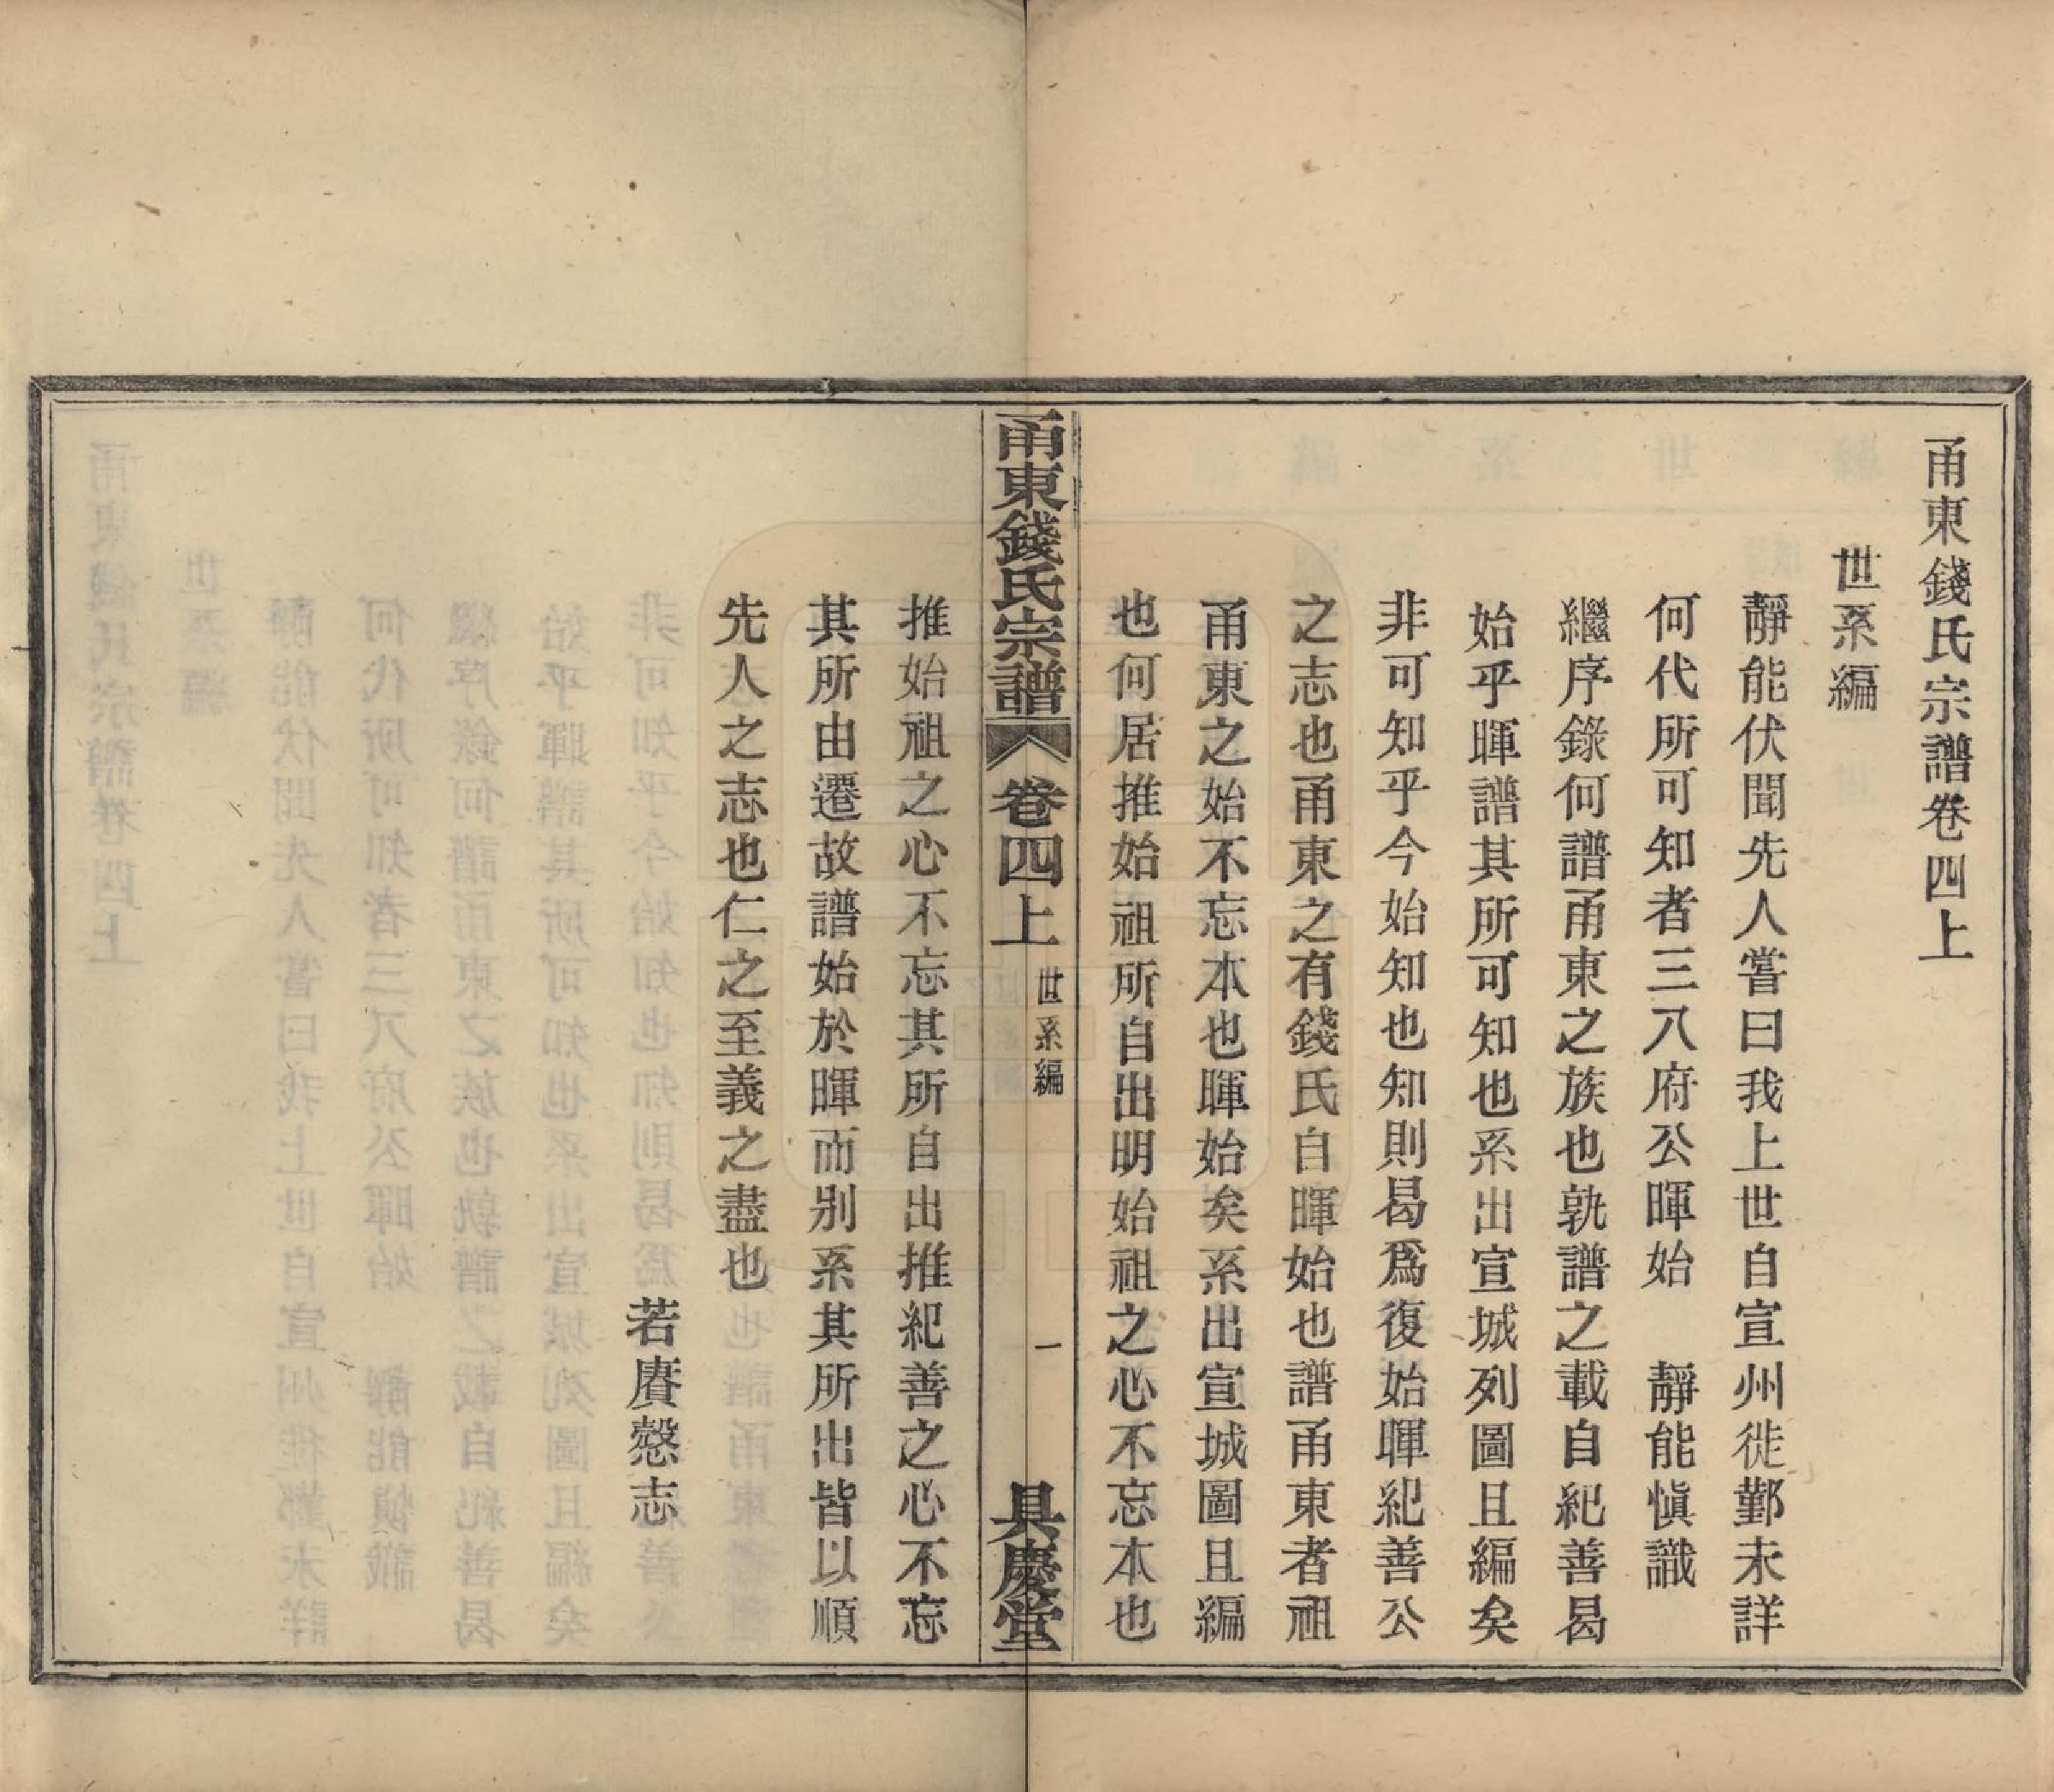 甬東錢氏宗譜卷四上
世系編
靜能伏聞先人嘗曰我上世自宣州徙鄞未詳
何代所可知者三八府公暉始　靜能愼識
繼序錄何譜甬東之族也孰譜之載自紀善曷
始乎暉譜其所可知也系出宣城列圖且編矣
非可知乎今始知也知則曷爲復始暉紀善公
之志也甬東之有錢氏自暉始也譜甬東者祖
甬東之始不忘本也暉始矣系出宣城圖且編
也何居推始祖所自出明始祖之心不忘本也
甬東錢氏宗譜　卷四上　世系編　一　具慶堂
推始祖之心不忘其所自出推紀善之心不忘
其所由遷故譜始於暉而別系其所出皆以順
先人之志也仁之至義之盡也
若賡慤志